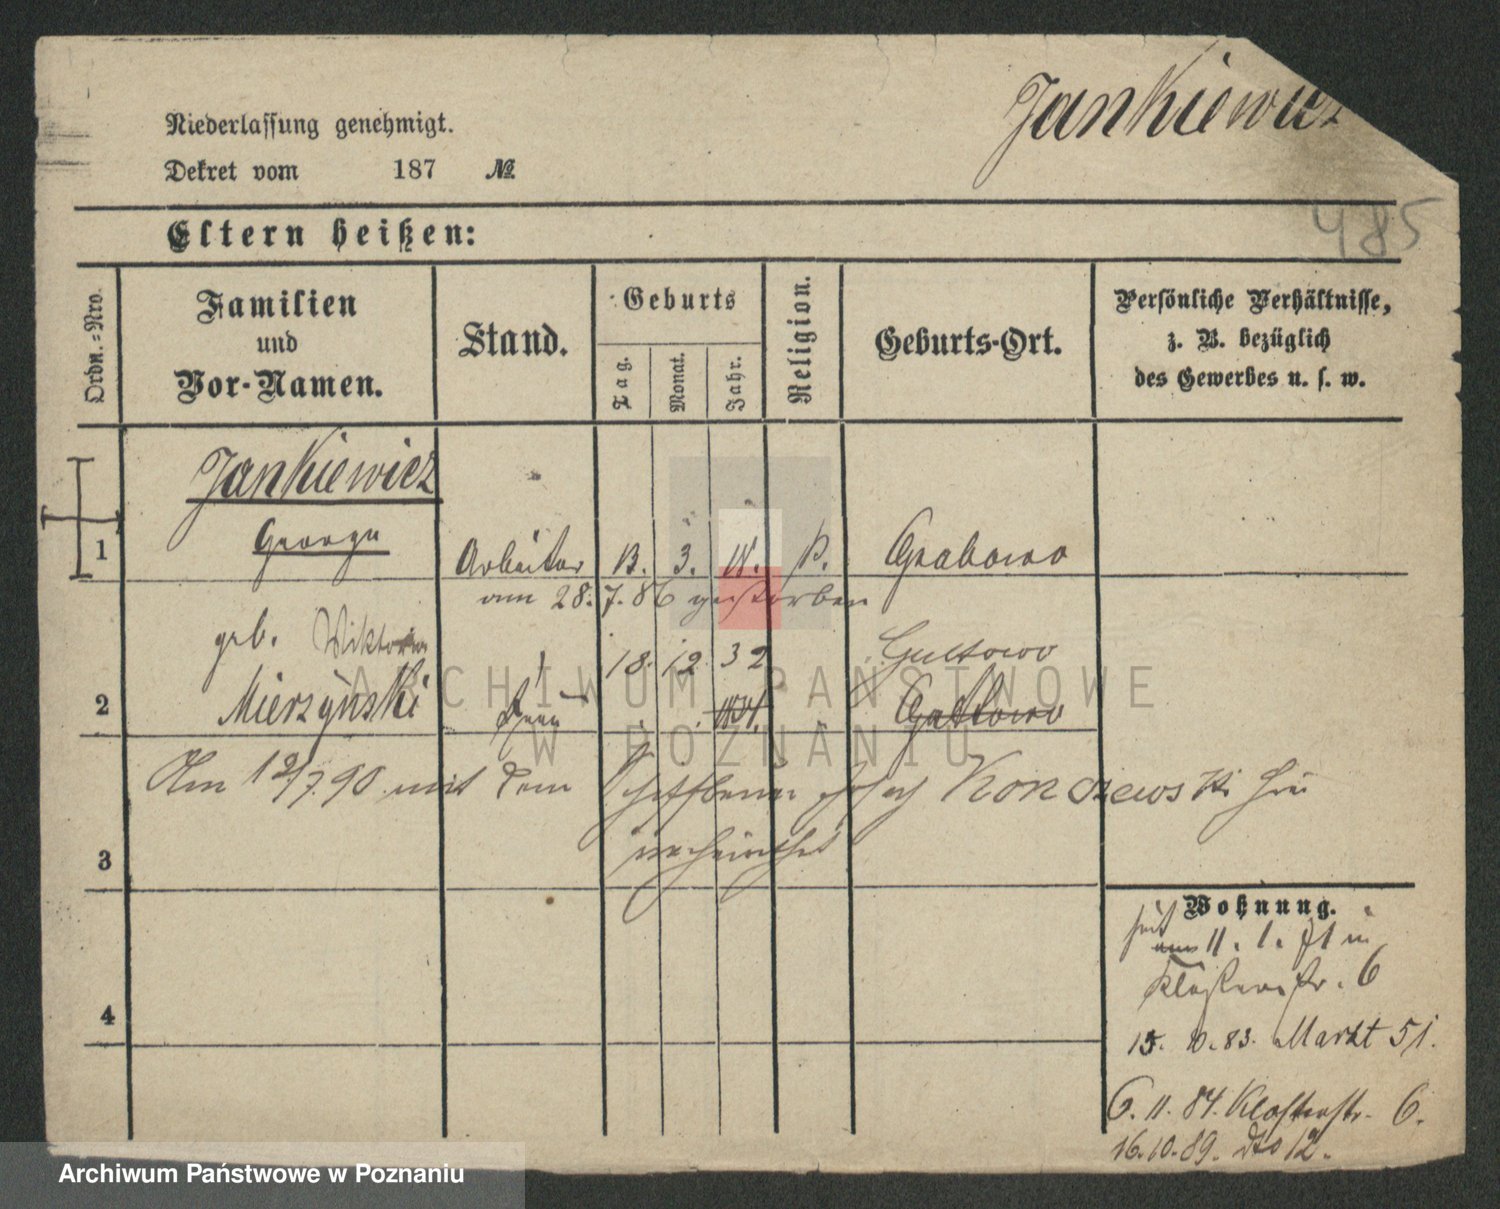 Jankiewicz
Niederlassung genehmigt.
Dekret vom 187 №
485
Eltern heißen:
Ordn.-Nro.
Familien
und
Vor-Namen.
Stand.
Geburts
Tag.
Monat.
Jahr.
Religion.
Geburts-Ort.
Persönliche Verhältnisse,
z. B. bezüglich
des Gewerbes u. s. w.
Jankiewicz
1 George Arbeiter 3. Grabowo
am 28.7.86 gestorben
geb. Wiktoria 18. 12. 32 Gultowo
2 Mierzynski Frau
Am 12/7.90 mit dem Josef Konczewski hier
3 verheirathet
Wohnung.
seit
11. 1. 81 in
Klosterstr. 6
4
15. 10. 83. Markt 51.
6. 11. 84. Klosterstr. 6.
16.10.89. dto 12.
ARCHIWUM PAŃSTWOWE
W POZNANIU
Archiwum Państwowe w Poznaniu